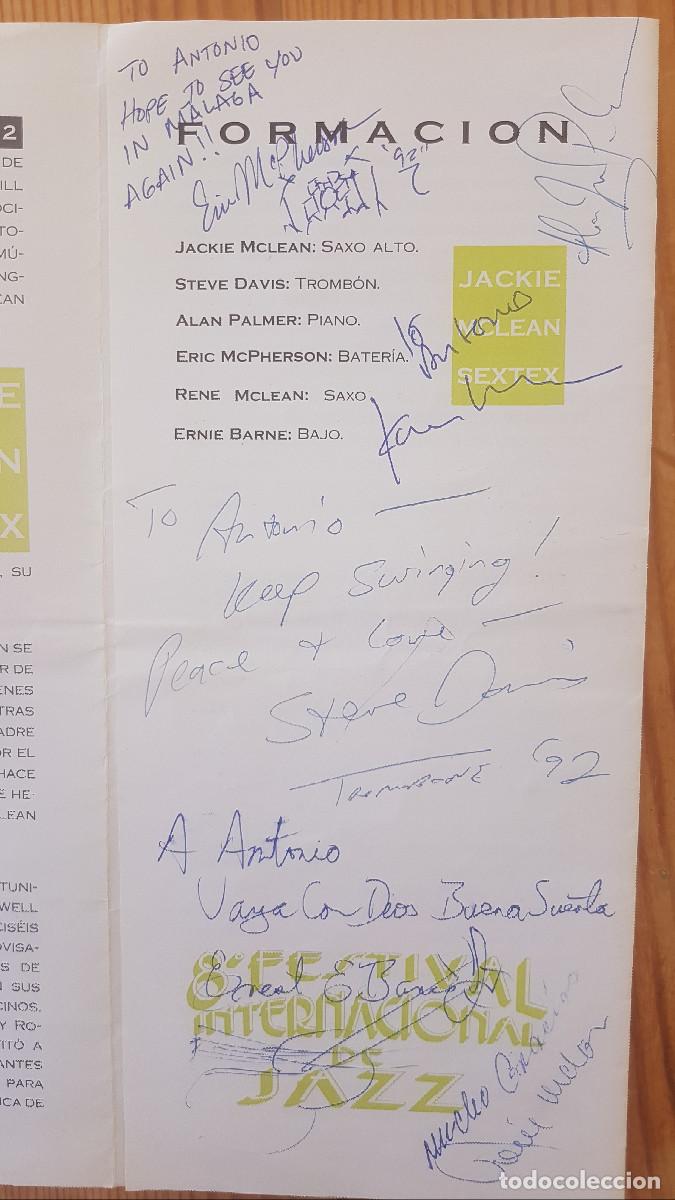 TO ANTONIO
HOPE TO SEE YOU
IN MALAGA
AGAIN!!
Eric McPherson
"92"
FORMACION
JACKIE MCLEAN: SAXO ALTO.
STEVE DAVIS: TROMBÓN.
ALAN PALMER: PIANO.
ERIC MCPHERSON: BATERÍA.
RENE MCLEAN: SAXO
ERNIE BARNE: BAJO.
JACKIE
MCLEAN
SEXTEX
To
Antonio
To Antonio —
Keep Swinging!
Peace & Love —
Steve Davis
TROMBONE '92
A Antonio
Vaya Con Dios Buena Suerta
Ernest E Barne
8º FESTIVAL
INTERNACIONAL
DE
JAZZ
Mucho Gracias
2
DE
ILL
OCI-
TO-
MÚ-
NG-
EAN
E
N
X
, SU
N SE
R DE
ENES
TRAS
ADRE
OR EL
HACE
E HE-
LEAN
TUNI-
WELL
CISÉIS
OVISA-
S DE
N SUS
CINOS.
Y RO-
ITÓ A
ANTES
PARA
ICA DE
todocoleccion